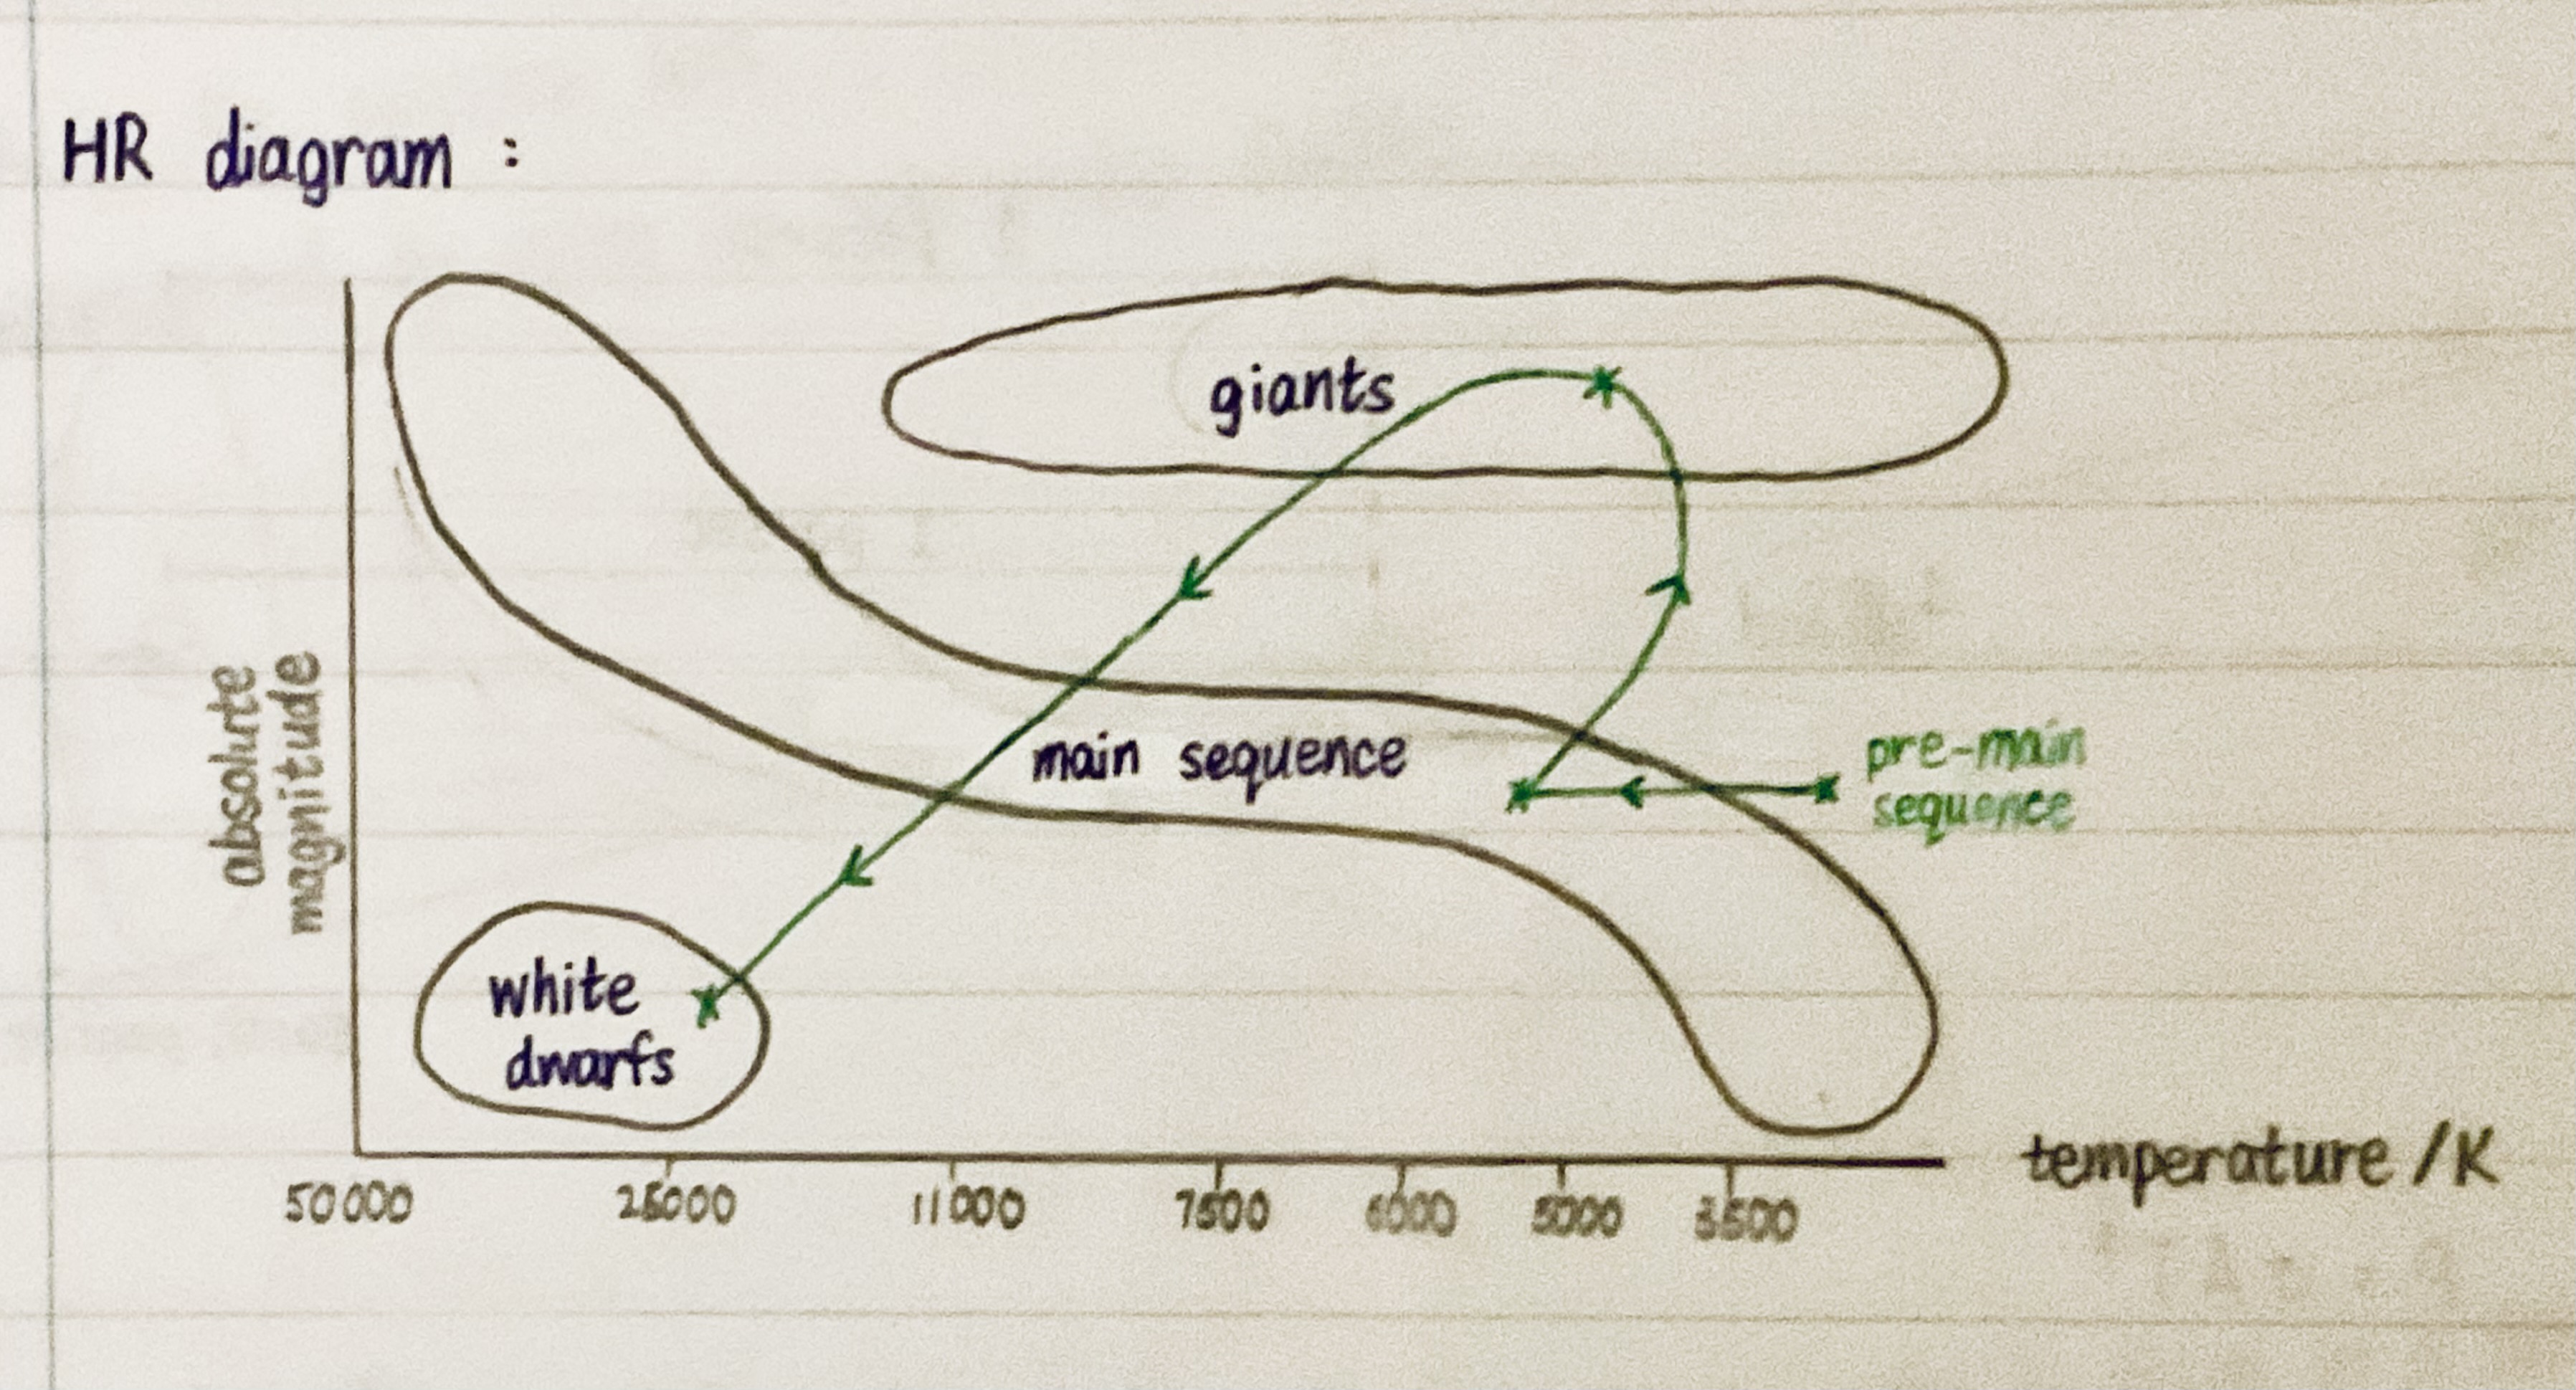 HR diagram :
giants
absolute
magnitude
main sequence
pre-main
sequence
white
dwarfs
50000 25000 11000 7500 6000 5000 3500
temperature /K